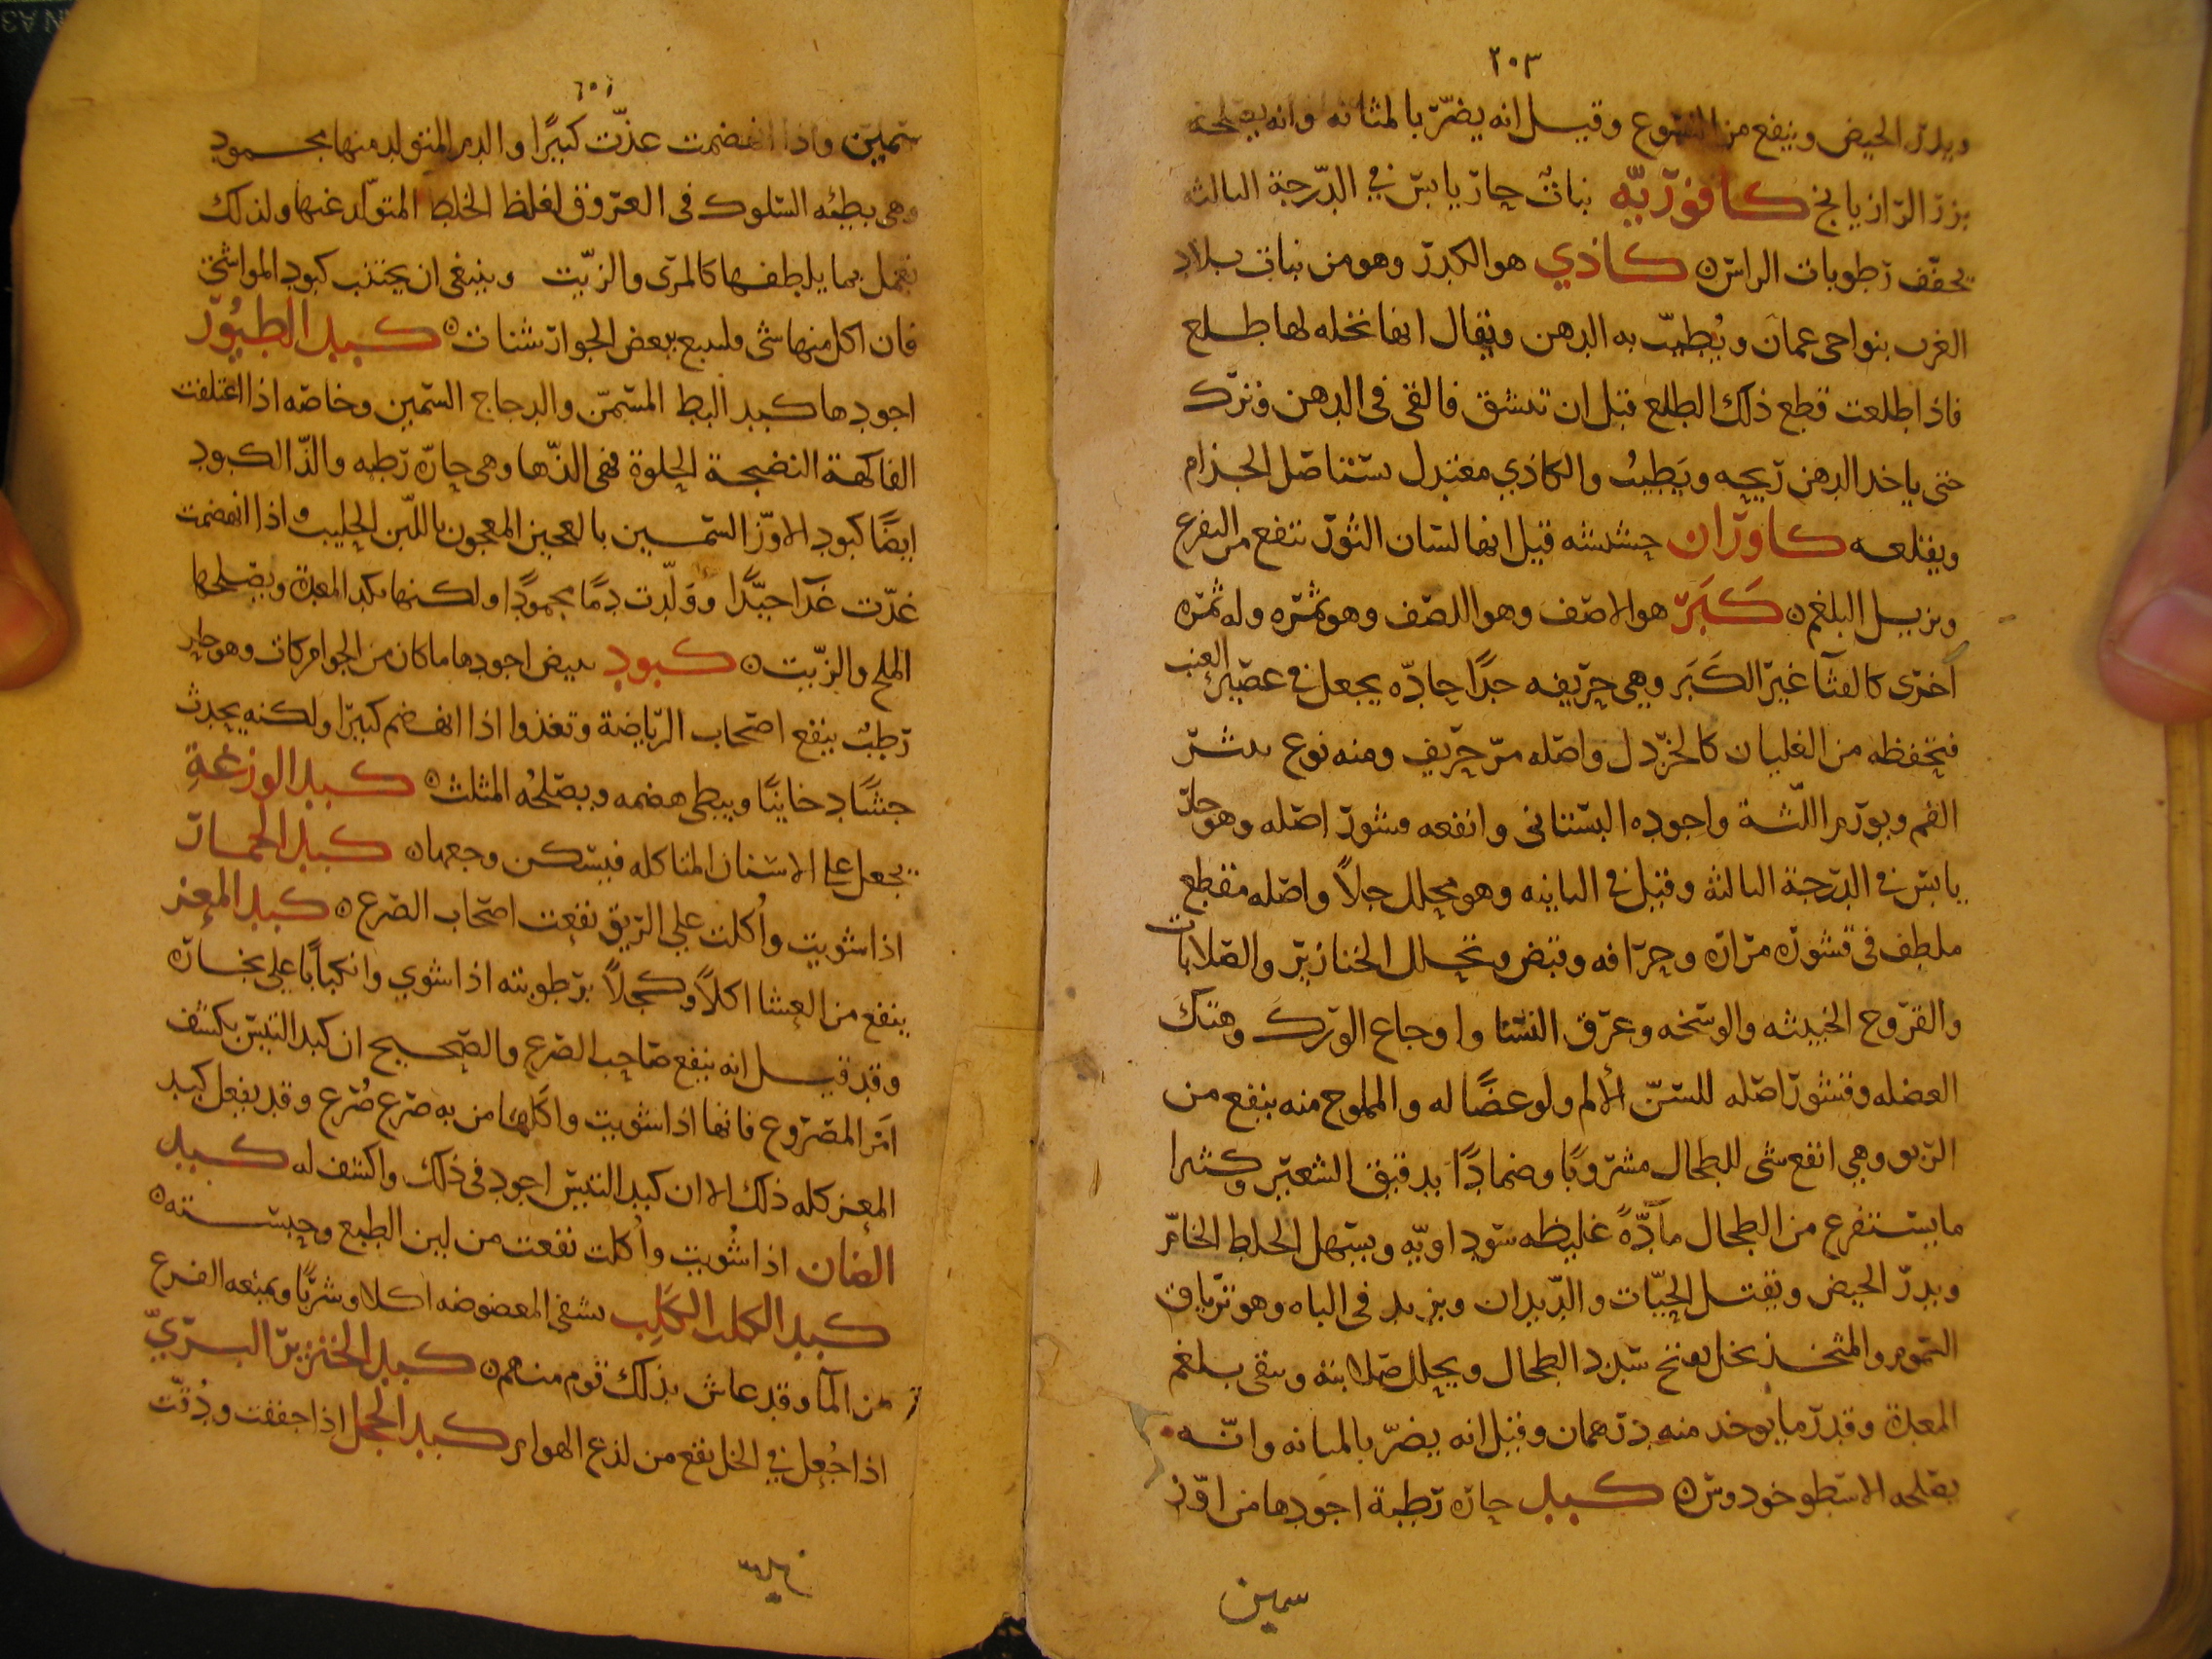 ٢٠٣
ويدر الحيض وينفع من وقيل انه يضر بالمثانه وانه يصلحه
بزر الرازيانج كافوريه نبات حار يابس في الدرجة الثالثه
يجفف رطوبات الراس كاذي هو الكدر وهو من نبات بلاد
العرب بنواحي عمان ويطيب به الدهن ويقال انها نخله لها طلع
فاذا طلعت قطع ذلك الطلع قبل ان تنشق فالقي في الدهن وترك
حتى ياخد الدهن ريحه ويطيب والكاذي معتدل يستاصل الجذام
ويقلعه كاوران حشيشه قيل انها لسان الثور تنفع من
ويزيل البلغم كَبَر هو الاصف وهو اللصف وهو ثمره وله ثمره
اخرى كالقثا غير الكَبَر وهي حريفه جدًا حادّه يجعل في عصير العنب
فتحفظه من الغليان كالخردل واصله مرّ حريف ومنه نوع يبثر
الفم ويورم اللثة واجوده البستاني وانفعه قشور اصله وهو حار
يابس في الدرجة الثالثه وقيل في الثانيه وهو محلل جلاً واصله مقطع
ملطف في قشوره مراره وحرافه وقبض وتحلل الخنازير والصلابات
والقروح الخبيثه والوسخه وعرق النسا واوجاع الورك وهتك
العضله وقشور اصله للسنّ الألم ولو عضًا له والمملوح منه ينفع من
الربو وهي انفع شي للطحال مشروبًا وضمادًا بدقيق الشعير وكثيرا
ما يستفرغ من الطحال مادّةً غليظه سوداويه ويسهل الخلط الخام
ويدرّ الحيض ويقتل الحيّات والديدان ويزيد في الباه وهو ترياق
السموم والمتخذ بخل يفتح سدد الطحال ويحلل صلابته وينقي بلغم
المعدة وقدر ما يوخد منه درهمان وقيل انه يضرّ بالمثانه وانّه
يصلحه الاسطوخودوس كبد حاره رطبة اجودها من اوز
سمين
سمين واذا انهضمت غذّت كثيرًا والدم المتولد منها محمود
وهي بطيئه السلوك في العروق لغلظ الخلط المتولد عنها ولذلك
تعمل بما يلطفها كالمرى والزيت وينبغي ان يجتنب كبود المواشي
فان اكل منها شي فليتبع ببعض الجوارشنات كبد الطيور
اجودها كبد البط المسمن والدجاج السمين وخاصه اذا اعتلفت
الفاكهة النضيجة الحلوة فهي الذها وهي حارّه رطبه والذّ الكبود
ايضًا كبود الاوز السمين بالعجين المعجون باللبن الحليب واذا انهضمت
غذّت غذآ جيّدًا وولّدت دمًا محمودًا ولكنها تكد المعدة ويصلحها
الملح والزيت كبود بيض اجودها ما كان من الجوامركات وهو حار
رطبٌ ينفع اصحاب الرياضة وتغذوا اذا انهضم كثيرًا ولكنه يحدث
جشًا دخانيًا ويبطي هضمه ويصلحُه المثلث كبد الوزغة
يجعل على الاسنان المتاكله فيسكن وجعها كبد الحمار
اذا شويت وأُكلت على الريق نفعت اصحاب الصرع كبد المعز
ينفع من العشا اكلاً وكحلاً برطوبته اذا شوي وانكبابًا على بخاره
وقد قيل انه ينفع صاحب الصرع والصحيح ان كبد التيس يكشف
امر المصروع فانها اذا شويت واكلها من به صرع صُرع وقد يفعل كبد
المعز كله ذلك الا ان كبد التيس اجود في ذلك واكشف له كبد
الضان اذا شُويت وأُكلت نفعت من لين الطبع وحبسته
كبد الكلب الكَلِب يشفي المعضوضه اكلا وشربًا ويمنعه الفزع
من المآ وقد عاش بذلك قوم منهم كبد الخنزير البرّيّ
اذا جُعل في الخل نفع من لذع الهوام كبد الجمل اذا جففت ودُقّت